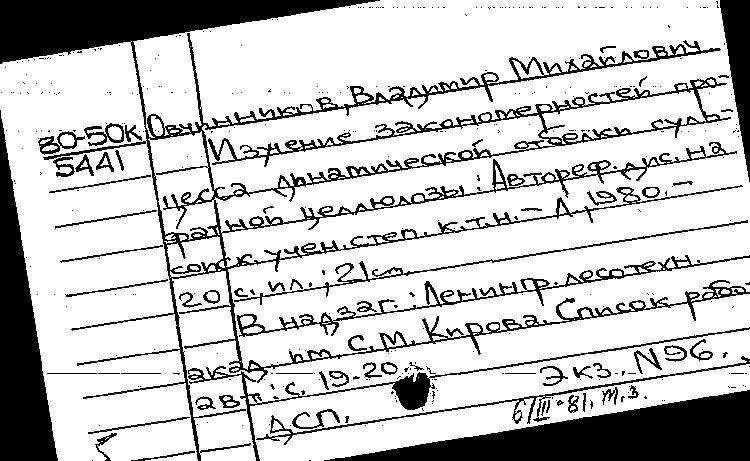 80-50К
5441
Овчинников, Владимир Михайлович
Изучение закономерностей про-
цесса динамической отбелки суль-
фатной целлюлозы : Автореф. дис. на
соиск. учен. степ. к.т.н. – Л., 1980. –
20 с., ил. ; 21 см.
В надзаг. : Ленингр. лесотехн.
акад. им. С.М. Кирова. Список работ
авт. : с. 19-20
ДСП.
Экз. N96.
6/III-81. т.з.